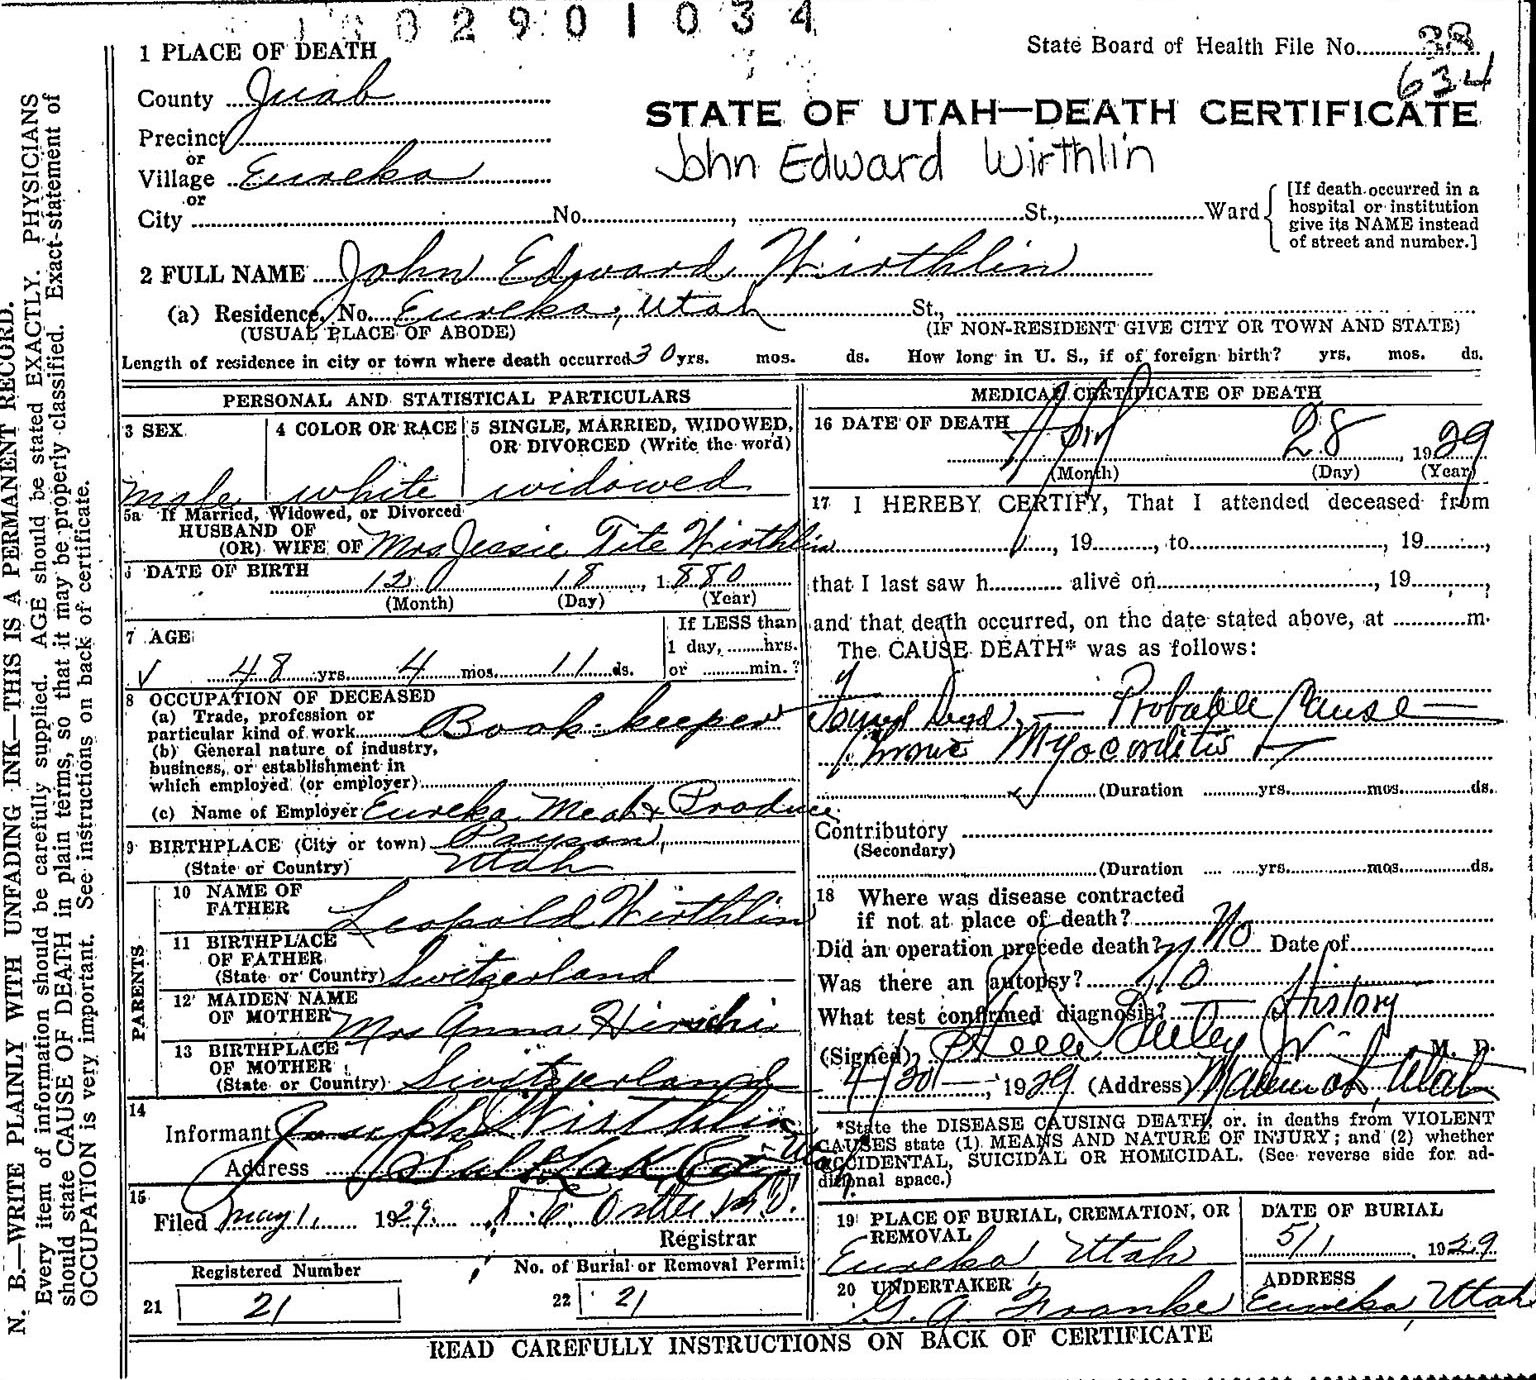 2901034
1 PLACE OF DEATH
State Board of Health File No. 38
634
County Juab
STATE OF UTAH—DEATH CERTIFICATE
Precinct
or
John Edward Wirthlin
Village Eureka
or
City No. , St., Ward
[If death occurred in a
hospital or institution
give its NAME instead
of street and number.]
2 FULL NAME John Edward Wirthlin
(a) Residence, No. Eureka, Utah St.,
(USUAL PLACE OF ABODE) (IF NON-RESIDENT GIVE CITY OR TOWN AND STATE)
Length of residence in city or town where death occurred 30 yrs. mos. ds. How long in U. S., if of foreign birth? yrs. mos. ds.
PERSONAL AND STATISTICAL PARTICULARS
3 SEX 4 COLOR OR RACE 5 SINGLE, MARRIED, WIDOWED,
OR DIVORCED (Write the word)
male white widowed
5a If Married, Widowed, or Divorced
HUSBAND OF
(OR) WIFE OF Mrs Jessie Tite Wirthlin
DATE OF BIRTH 12 18, 1880
(Month) (Day) (Year)
7 AGE If LESS than
1 day, hrs.
48 yrs. 4 mos. 11 ds. or min.?
8 OCCUPATION OF DECEASED
(a) Trade, profession or
particular kind of work Book keeper
(b) General nature of industry,
business, or establishment in
which employed (or employer)
(c) Name of Employer Eureka Meat & Produce
9 BIRTHPLACE (City or town) Payson,
(State or Country) Utah
PARENTS
10 NAME OF
FATHER Leopold Wirthlin
11 BIRTHPLACE
OF FATHER
(State or Country) Switzerland
12 MAIDEN NAME
OF MOTHER Mrs Anna Hirschi
13 BIRTHPLACE
OF MOTHER
(State or Country) Switzerland
14
Informant Joseph Wirthlin
Address Salt Lak City Utah
15
Filed May 1, 1929.
Registrar
Registered Number No. of Burial or Removal Permit
21 21 22 21
MEDICAL CERTIFICATE OF DEATH
16 DATE OF DEATH April 28, 1929
(Month) (Day) (Year)
17 I HEREBY CERTIFY, That I attended deceased from
, 19 , to , 19 ,
that I last saw h alive on , 19 ,
and that death occurred, on the date stated above, at m.
The CAUSE DEATH* was as follows:
Found Dead, — Probable Cause —
Chronic Myocarditis —
(Duration yrs. mos. ds.
Contributory
(Secondary)
(Duration yrs. mos. ds.
18 Where was disease contracted
if not at place of death?
Did an operation precede death? No Date of
Was there an autopsy? No
What test confirmed diagnosis? History
(Signed) Steele Bailey Jr M. D.
4/30 —, 1929 (Address) Mammoth, Utah
*State the DISEASE CAUSING DEATH, or in deaths from VIOLENT
CAUSES state (1) MEANS AND NATURE OF INJURY; and (2) whether
ACCIDENTAL, SUICIDAL OR HOMICIDAL. (See reverse side for ad-
ditional space.)
19 PLACE OF BURIAL, CREMATION, OR
REMOVAL
Eureka Utah
DATE OF BURIAL
5/1, 1929
20 UNDERTAKER
G. A. Franke
ADDRESS
Eureka, Utah
READ CAREFULLY INSTRUCTIONS ON BACK OF CERTIFICATE
N. B.—WRITE PLAINLY WITH UNFADING INK—THIS IS A PERMANENT RECORD.
Every item of information should be carefully supplied. AGE should be stated EXACTLY. PHYSICIANS
should state CAUSE OF DEATH in plain terms, so that it may be properly classified. Exact statement of
OCCUPATION is very important. See instructions on back of certificate.